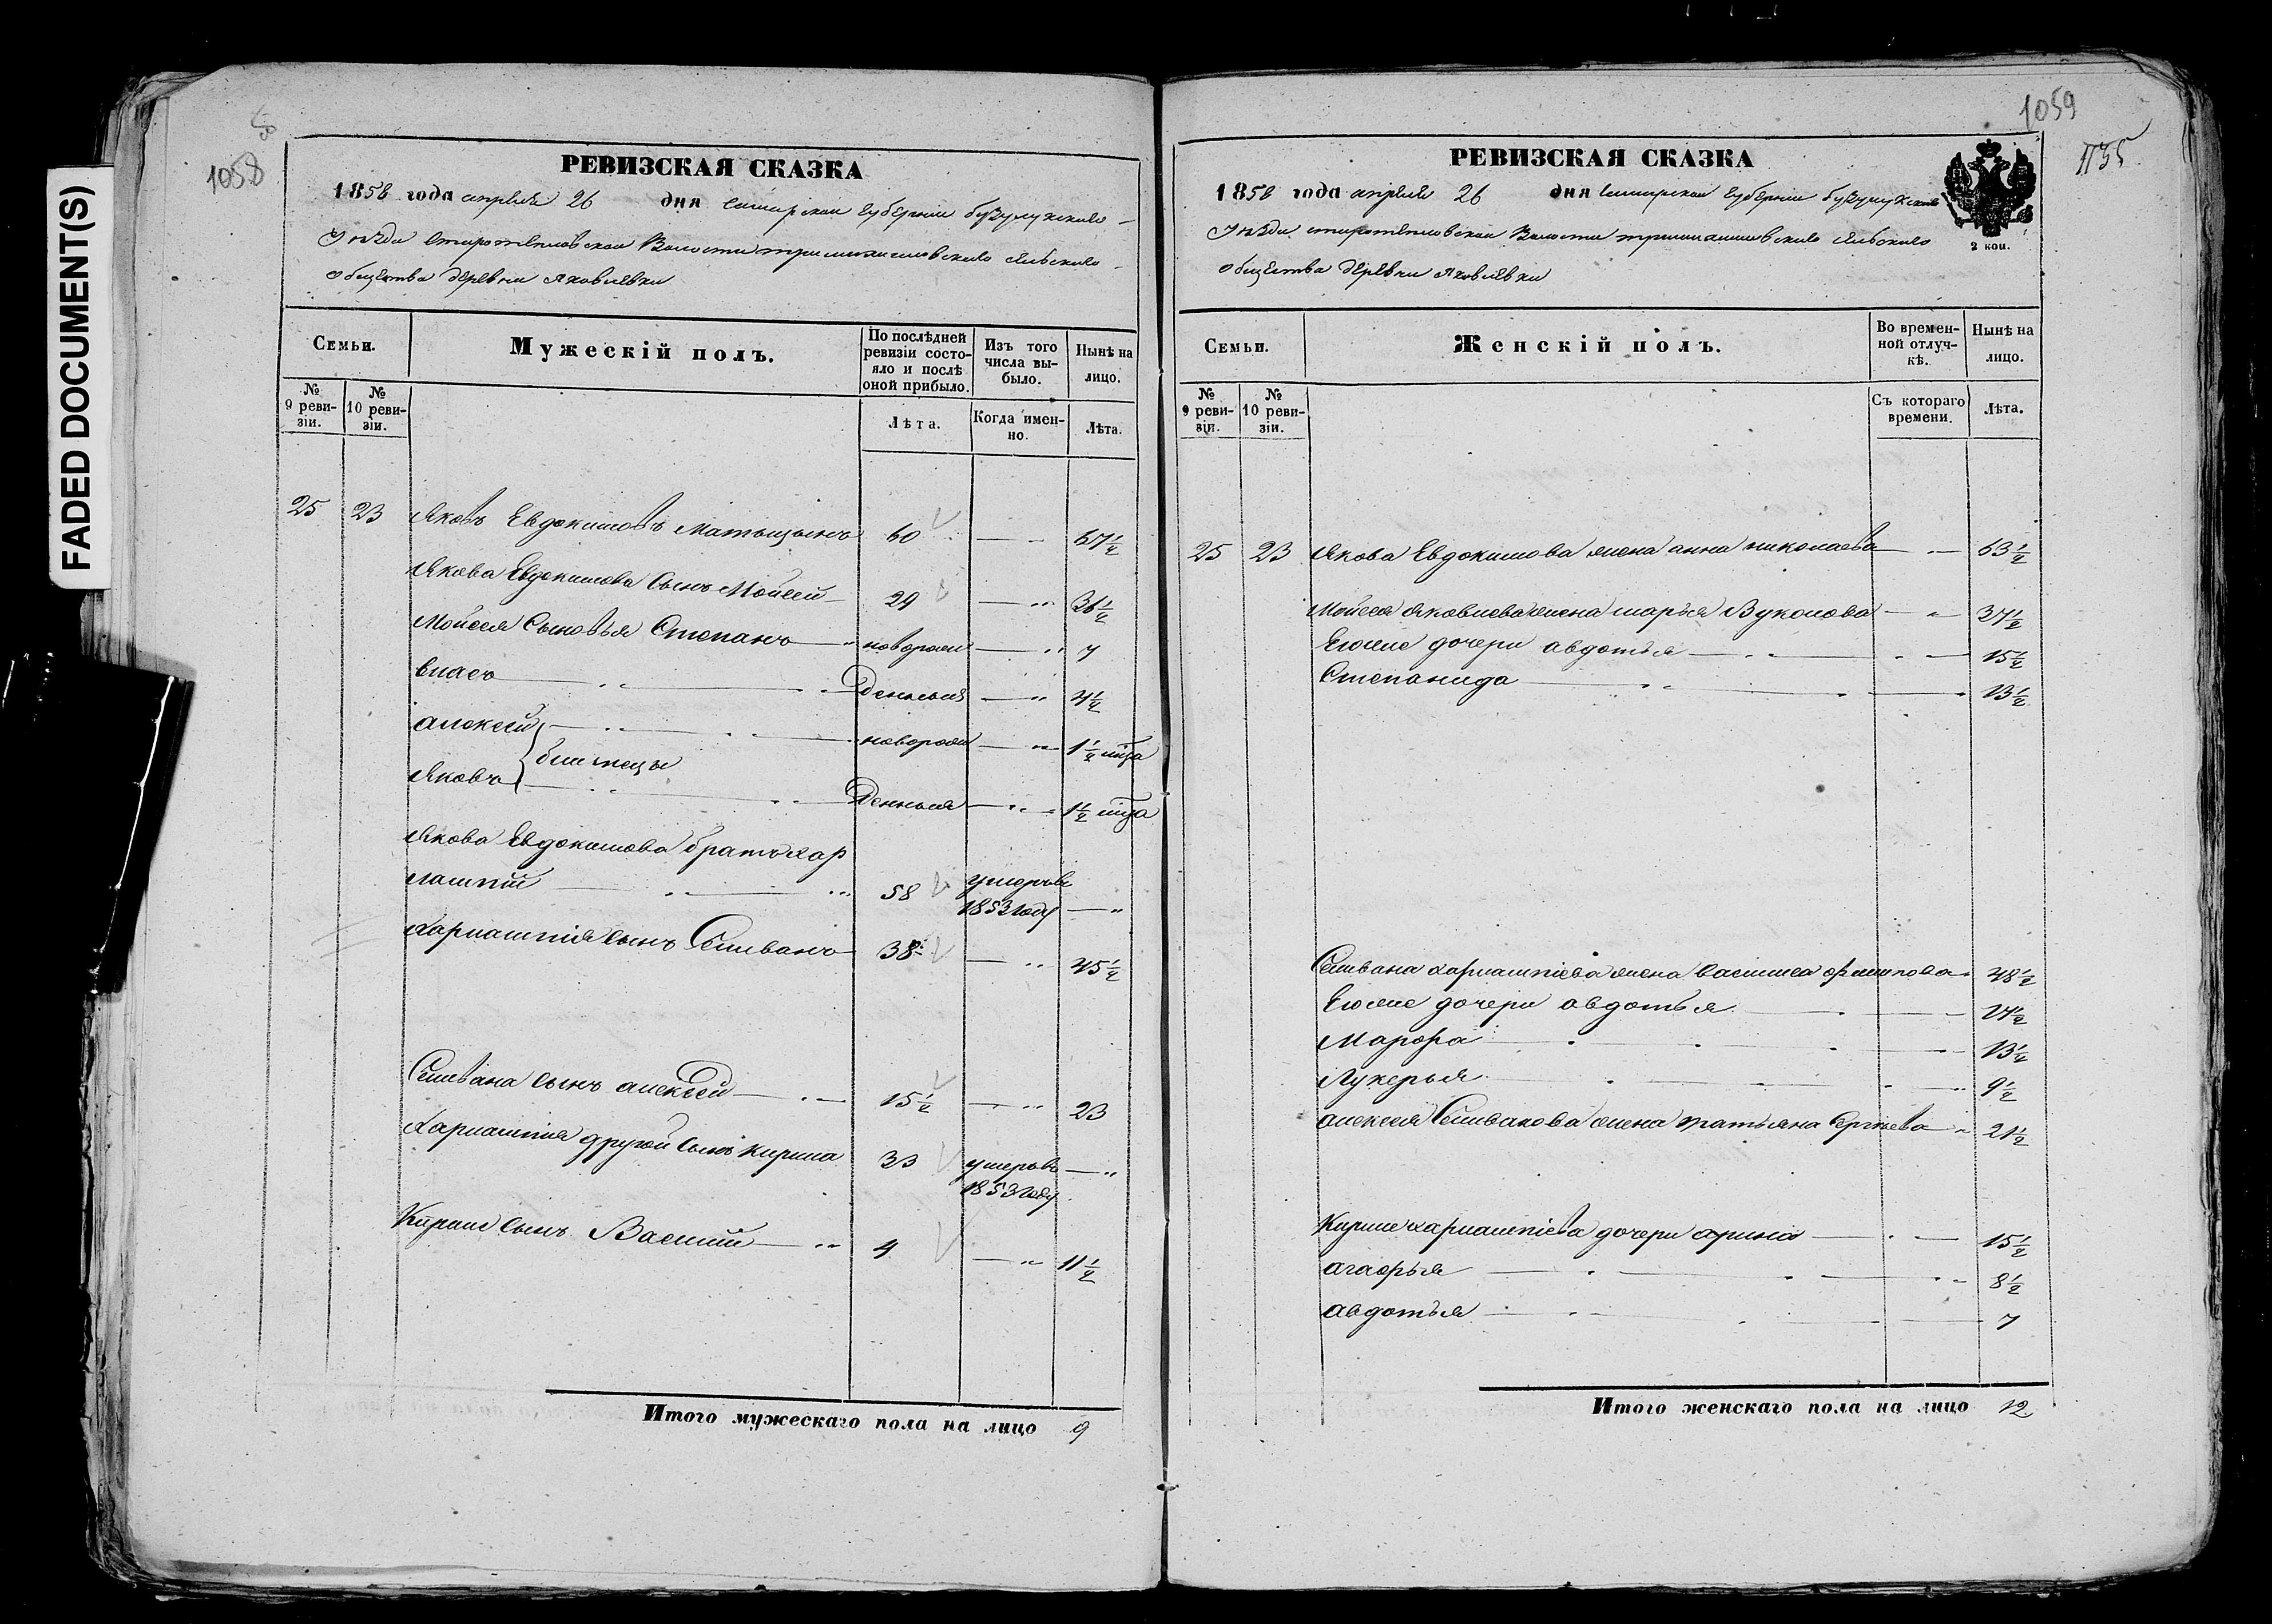 FADED DOCUMENT(S)
1058
РЕВИЗСКАЯ СКАЗКА
1858 года апреля 26 дня Самарской губернии бузулукского
Уезда Старотепловской Волости сельского
общества деревни Яковлевки
Семьи.
Мужескій полъ.
По послѣдней ревизіи состояло и послѣ оной прибыло.
Изъ того числа выбыло.
Нынѣ на лицо.
№ 9 ревизіи.
№ 10 ревизіи.
Лѣта.
Когда именно.
Лѣта.
25 23 Яковъ Евдокимовъ Матыцынъ 60 — 67½
Якова Евдокимова Сынъ Мойсей 29 — 36½
Мойсея Сыновья Степанъ — новорож — 7
власъ — денныя — 4½
алексей — новорож — 1½ мца
близнецы
Яковъ — денныя — 1½ мца
Якова Евдокимова братъ хар
лампій — 58 умеръ въ
1853 году —
харлампія сынъ Селиванъ 38 — 45½
Селивана сынъ алексей — 15½ — 23
Харлампія другой сынъ кирила 33 умеръ въ —
1853 году
Кирилы сынъ Василий — 4 — 11½
Итого мужескаго пола на лицо 9
1059
1135
РЕВИЗСКАЯ СКАЗКА
1858 года апреля 26 дня Самарской губернии бузулукскаго
Уезда старотепловской Волости сельского
общества деревни Яковлевки
2 коп.
Семьи.
Женскій полъ.
Во временной отлучкѣ.
Нынѣ на лицо.
№ 9 ревизіи.
№ 10 ревизіи.
Съ котораго времени.
Лѣта.
25 23 Якова Евдокимова жена анна николаева — 63½
Мойсея Яковлева жена марья Вуколова — 37½
Егоже дочери авдотья — 15½
Степанида — 13½
Селивана харлампіева жена василиса филипова 48½
Егоже дочери авдотья — 17½
Марфа — 13½
Лукерья — 9½
алексея Селиванова жена татьяна Сергеева 21½
Кирилы харлампіева дочери арина — 15½
агафья — 8½
авдотья — 7
Итого женскаго пола на лицо 12